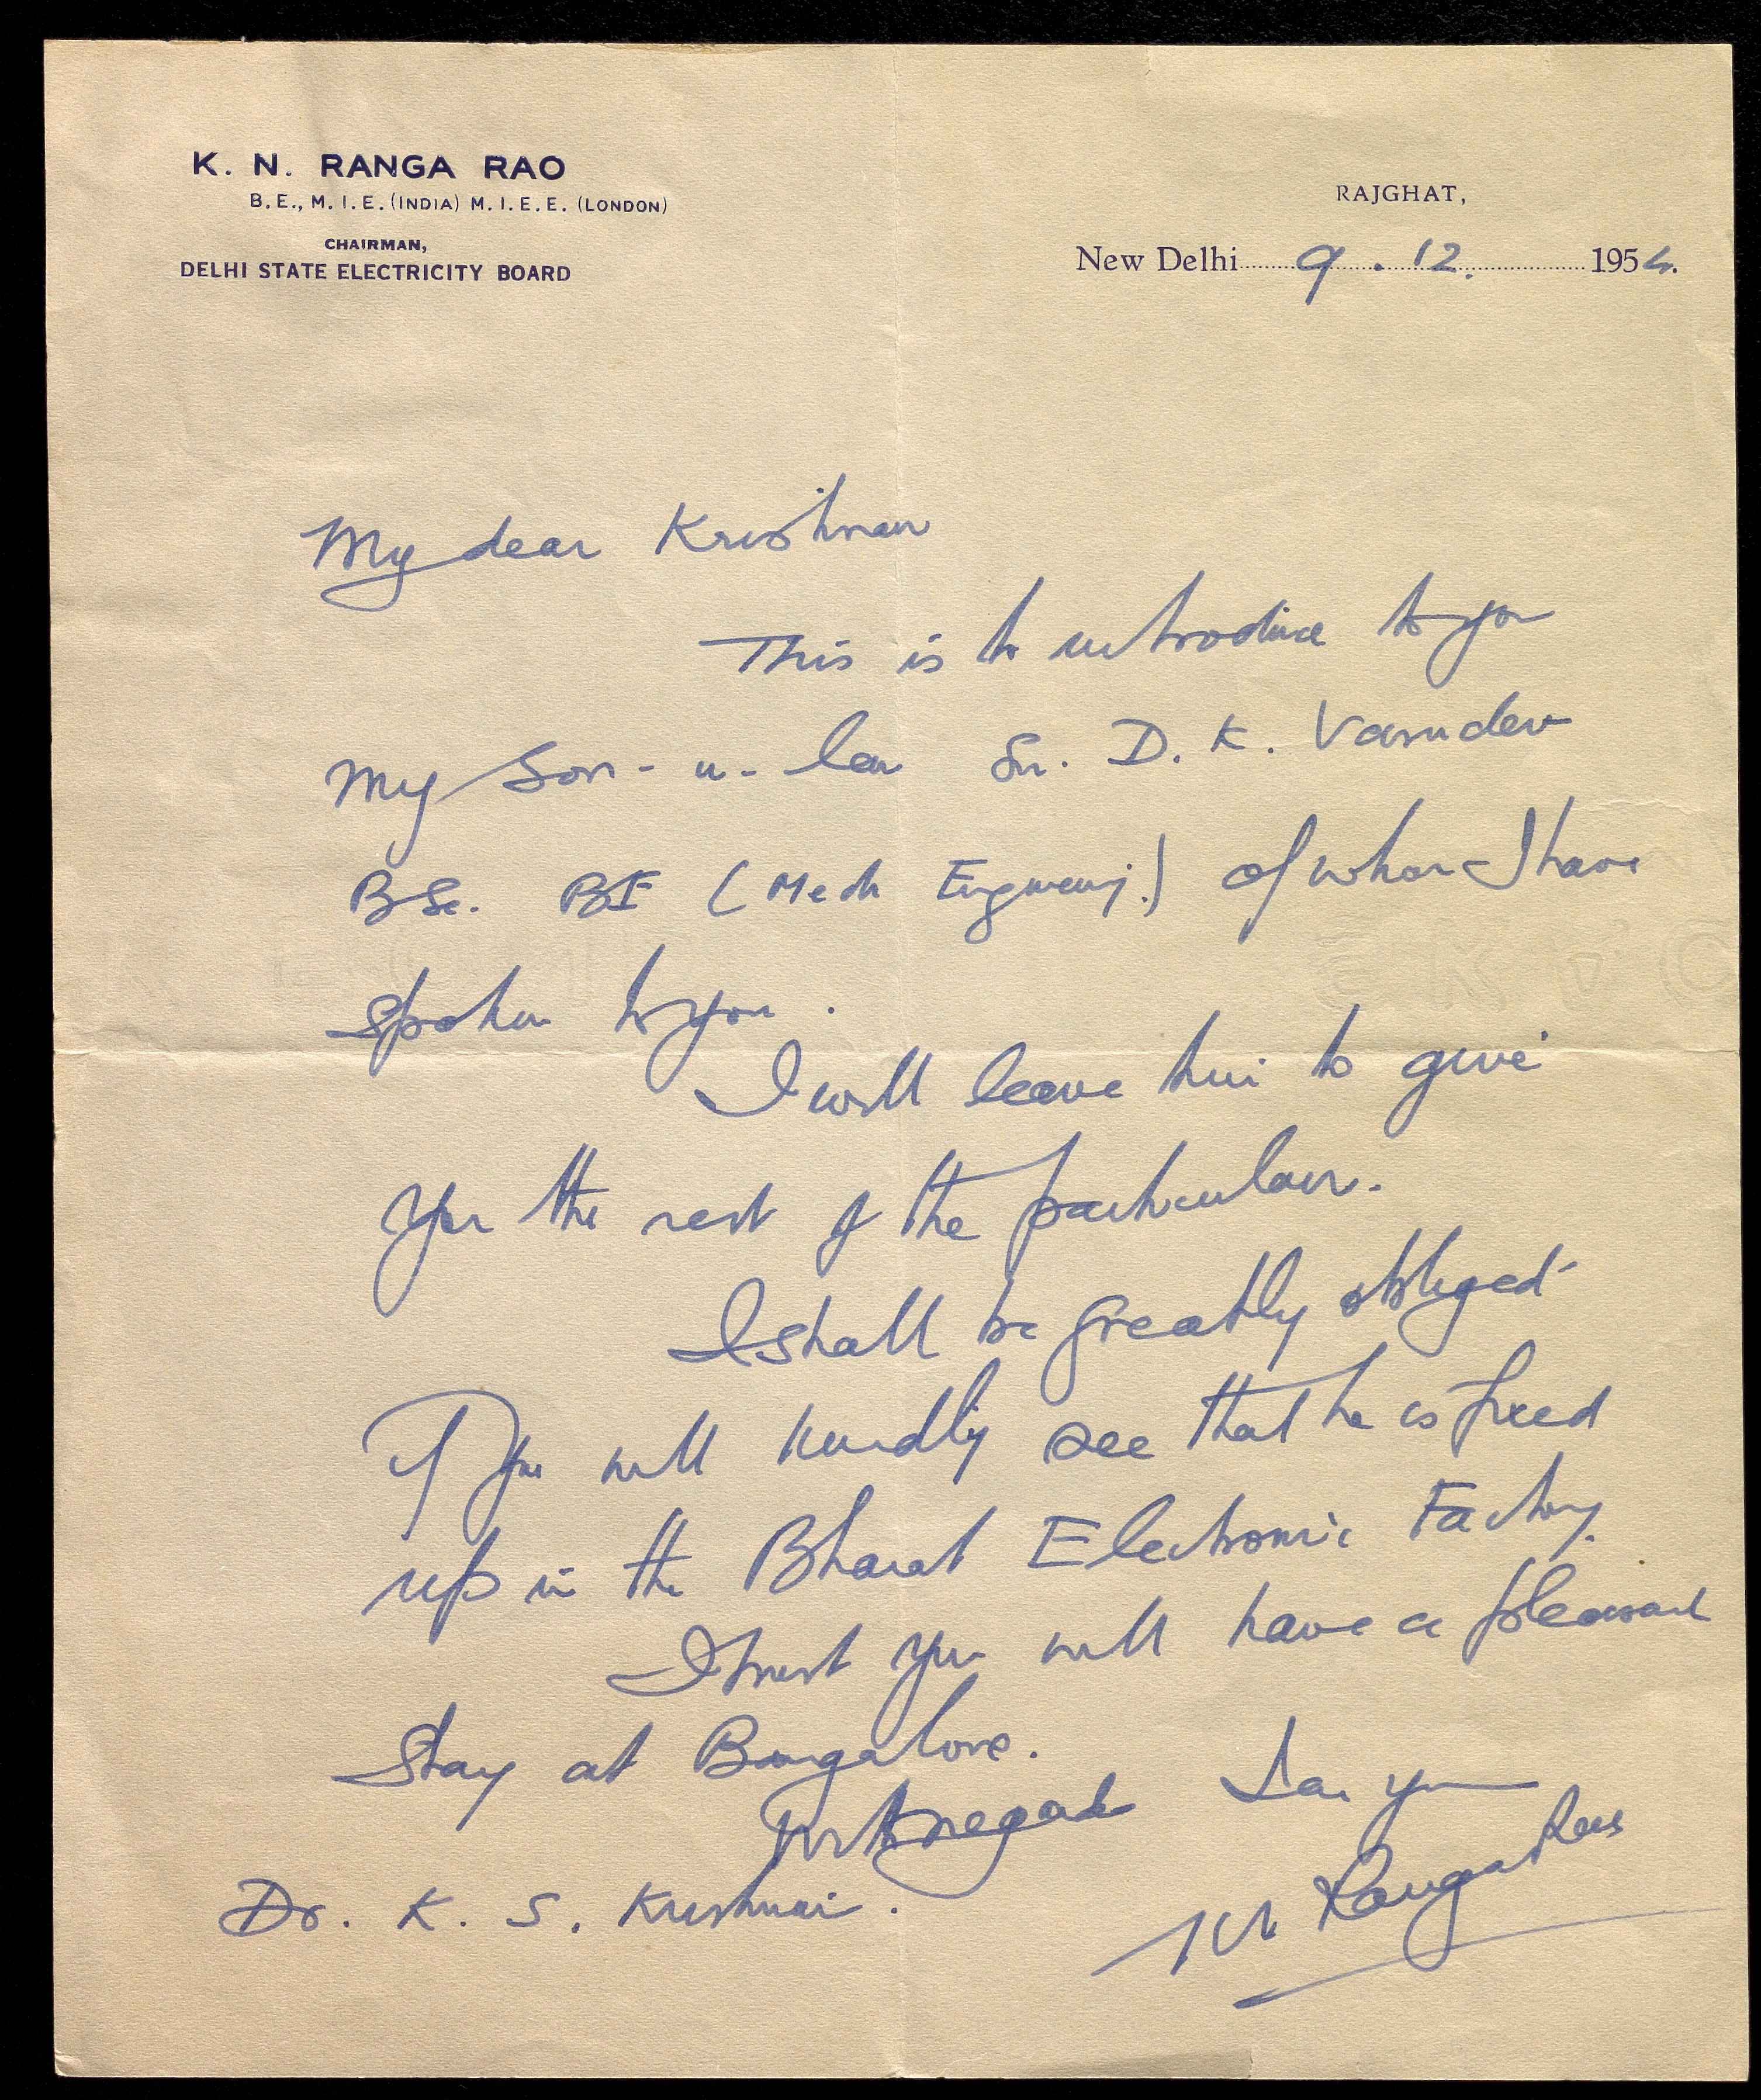 K. N. RANGA RAO
B.E., M.I.E. (INDIA) M.I.E.E. (LONDON)
CHAIRMAN,
DELHI STATE ELECTRICITY BOARD
RAJGHAT,
New Delhi 9 . 12. 1954.
My dear Krishnan
This is to introduce to you
my Son-in-law Sri. D. K. Vasudev
BSc. BE (Mech Engineering.) of whom I have
spoken to you.
I will leave him to give
you the rest of the particulars.
I shall be greatly obliged
if you will kindly see that he is fixed
up in the Bharat Electronic Factory.
I trust you will have a pleasant
stay at Bangalore.
With regards
K N Ranga Rao
Dr. K. S. Krishnan.